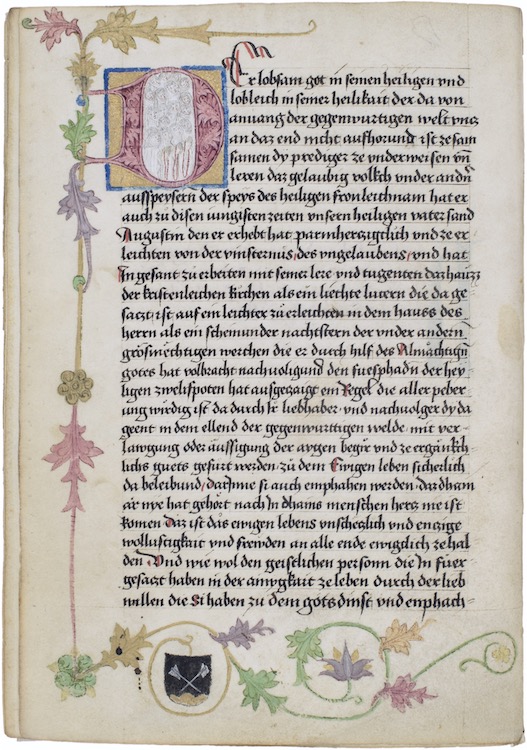 Der lobsam got in seinen heiligen vnd
lobleich in seiner heilikait der da von
anuang der gegenwurtigen welt vncz
an daz end nicht aufhorund ist ze sam
samen dy prediger ze vnderweisen vn̄
leren daz gelaubig volkch vnder andn̄
ausspeysern der speys des heiligen fronleichnam hat er
auch zu disen iungisten zeiten vnsern heiligen vater sand
Augustin den er erhebt hat parmherczigclich vnd ze er
leichten von der vinsternüs des vngelaubens vnd hat
In gesant zu erbeiten mit seiner lere vnd tugenten daz hauz
der kristenleichen kirchen als ein liechte lutern die da ge
saczt ist auf ein leichter zu erleichten in dem hauss des
herrn als ein schein under nachtstern der vnder andern
grösmechtigen werchen die er durch hilf des Almachtign̄
gottes hat volbracht nachuoligund den fuesphadn der hey
ligen zwelifpoten hat ausgezaigt ein Regel die aller peber
ung wirdig ist da durch ir liebhaber vnd nachuolger dy da
geent in dem ellend der gegenwurttigen welde mit ver
lawgung oder äussigung der aygen begir vnd zergänkch
lichs guets gefurt werden zu dem Ewigen leben sicherlich
da beleibund dar Inne si auch emphahen werden daz dham
är nye hat gehört nach In dhains menschen hercz nie ist
komen Daz ist das ewigen lebens vnschezlich vnd enzige
wollustigkait vnd frewden an alle ende ewigclich ze hal
den Vnd wie wol den geistlichen personn die In fuer
gesaczt haben in der ainygkait ze leben durch der lieb
willen die Si haben zu dem gots dinst vnd enphach-